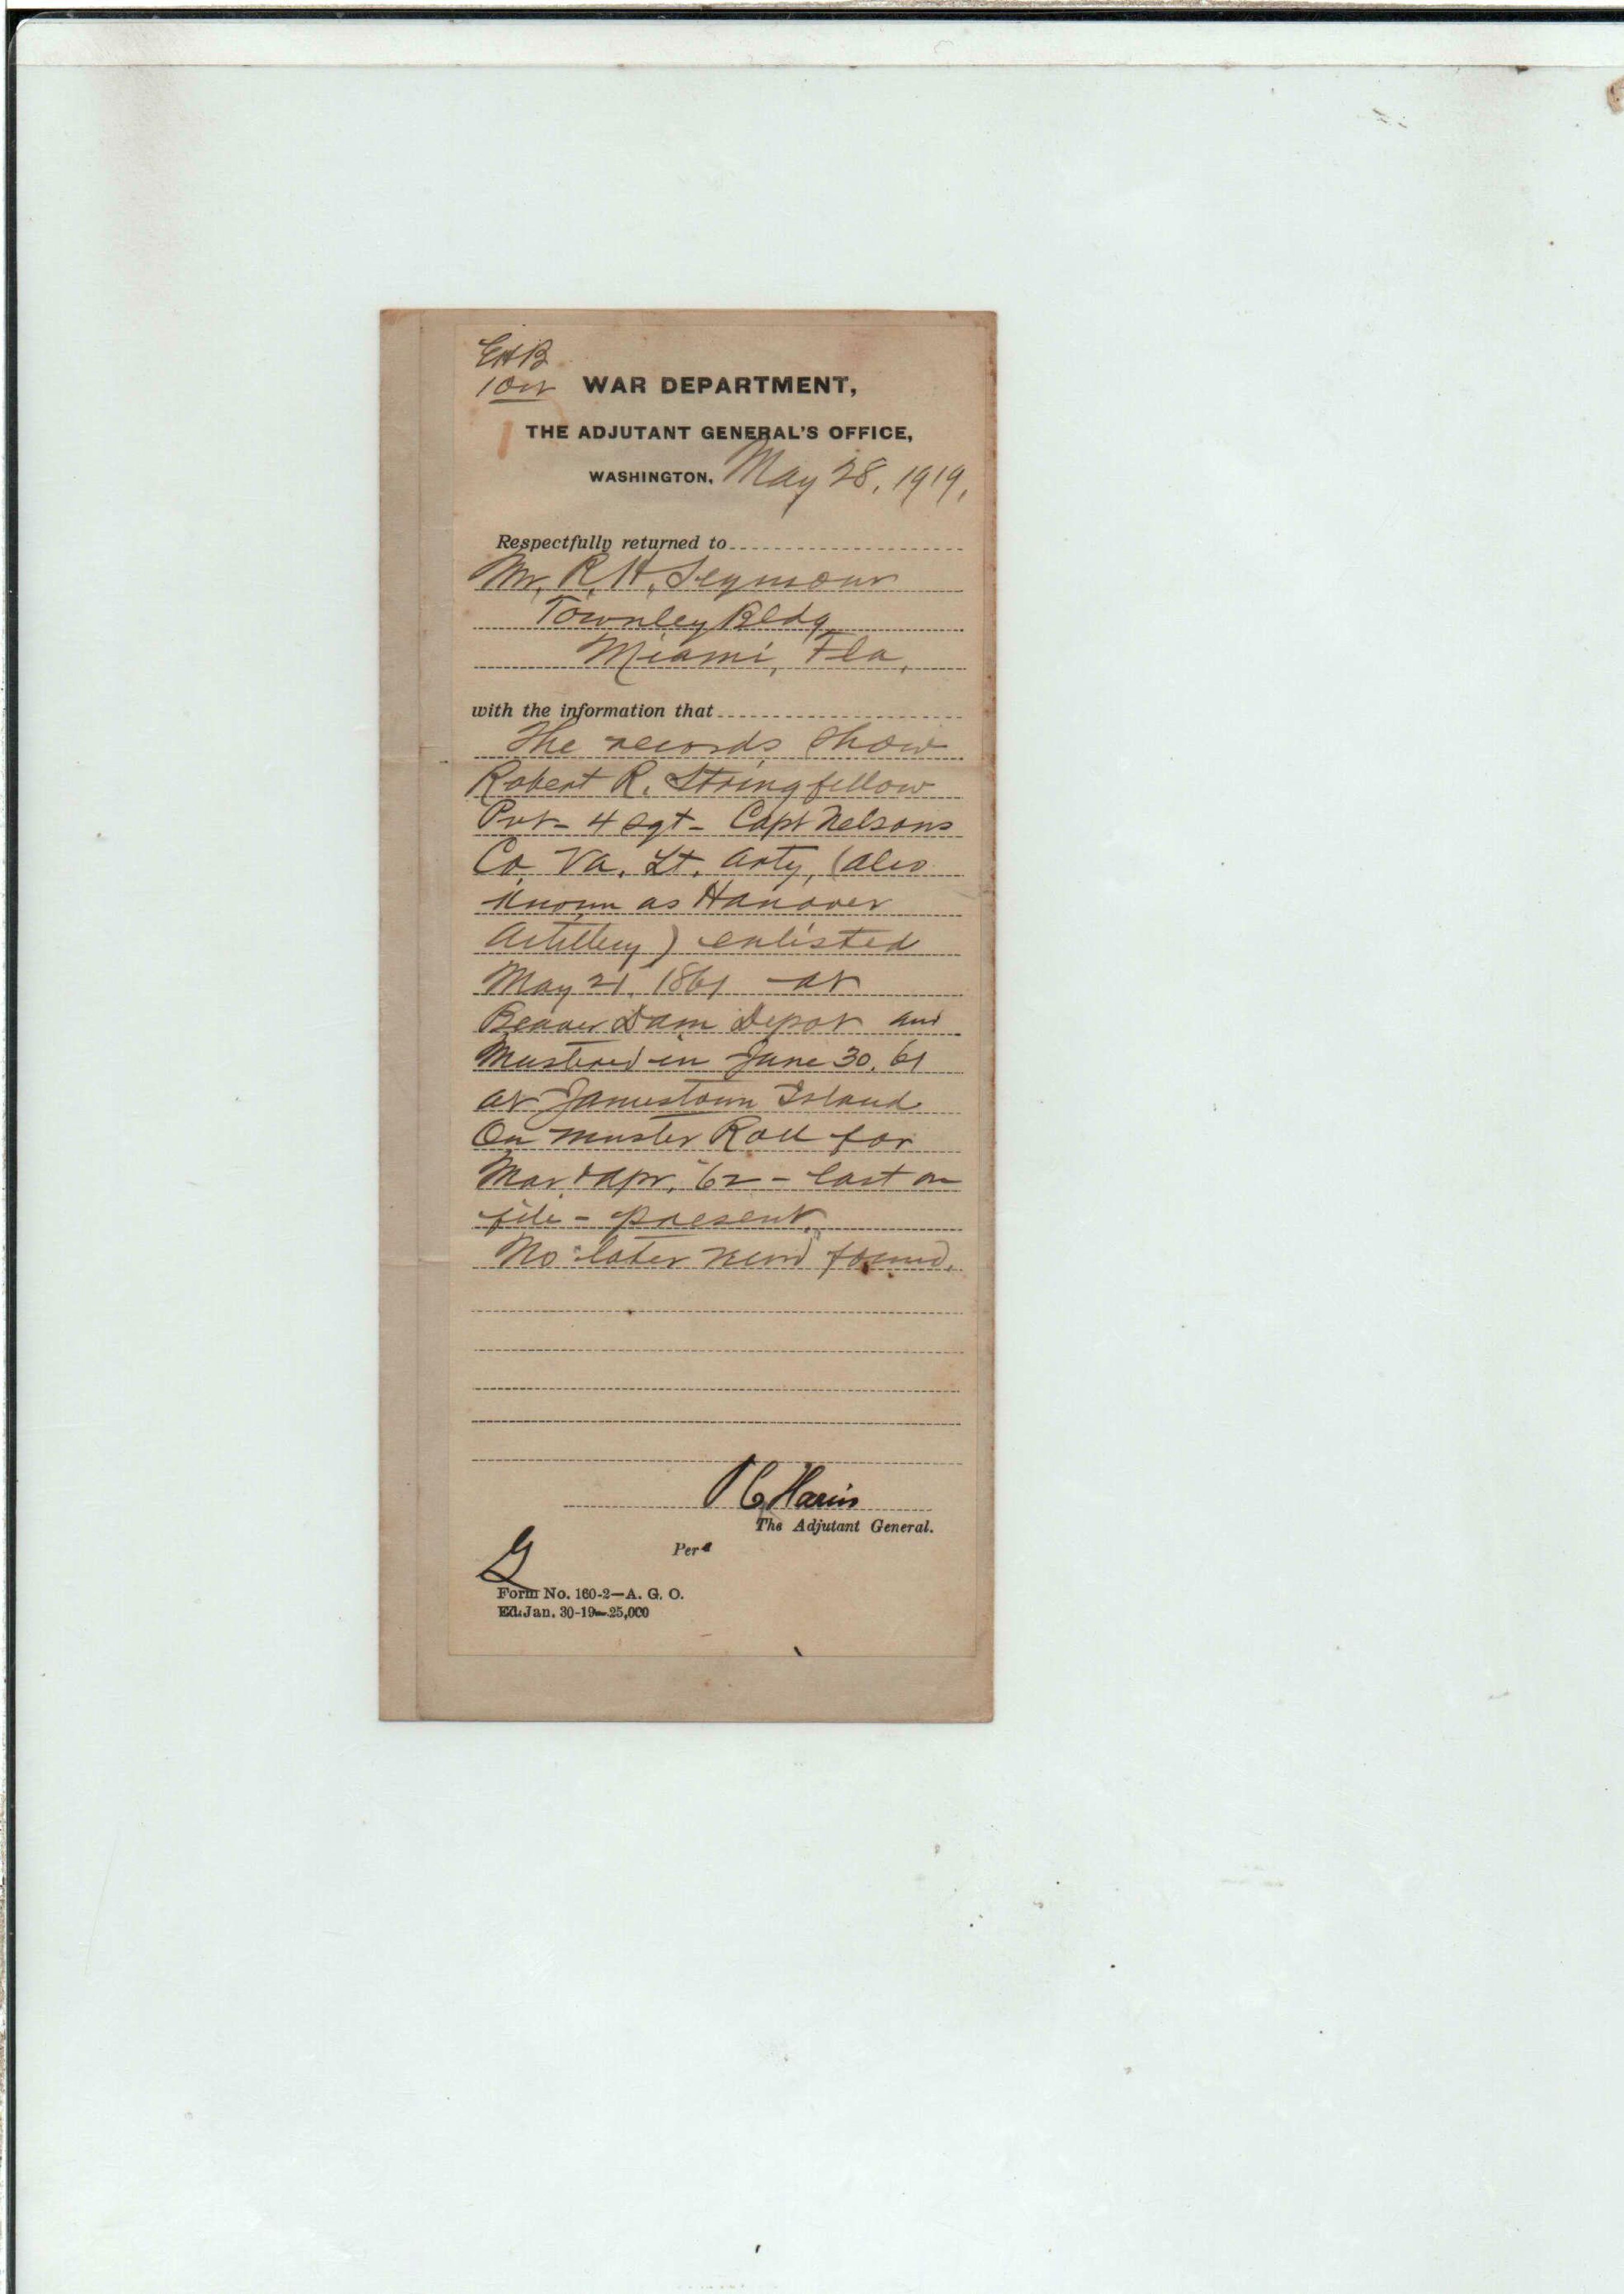 EHB
WAR DEPARTMENT,
THE ADJUTANT GENERAL'S OFFICE,
WASHINGTON, May 28, 1919,
Respectfully returned to
Mr. R. H. Seymour
Townley Bldg
Miami, Fla,
with the information that
The records show
Robert R. Stringfellow
Pvt - 4 Sgt - Capt Nelsons
Co. Va. Lt. Arty, (also
known as Hanover
Artillery) enlisted
May 21, 1861 at
Beaver Dam Depot and
Mustered in June 30, 61
at Jamestown Island
On Muster Roll for
Mar. & Apr. '62 - last on
file - present.
No later record found.
P C Harris
The Adjutant General.
Per
G
Form No. 160-2—A. G. O.
Ed. Jan. 30-19—25,000